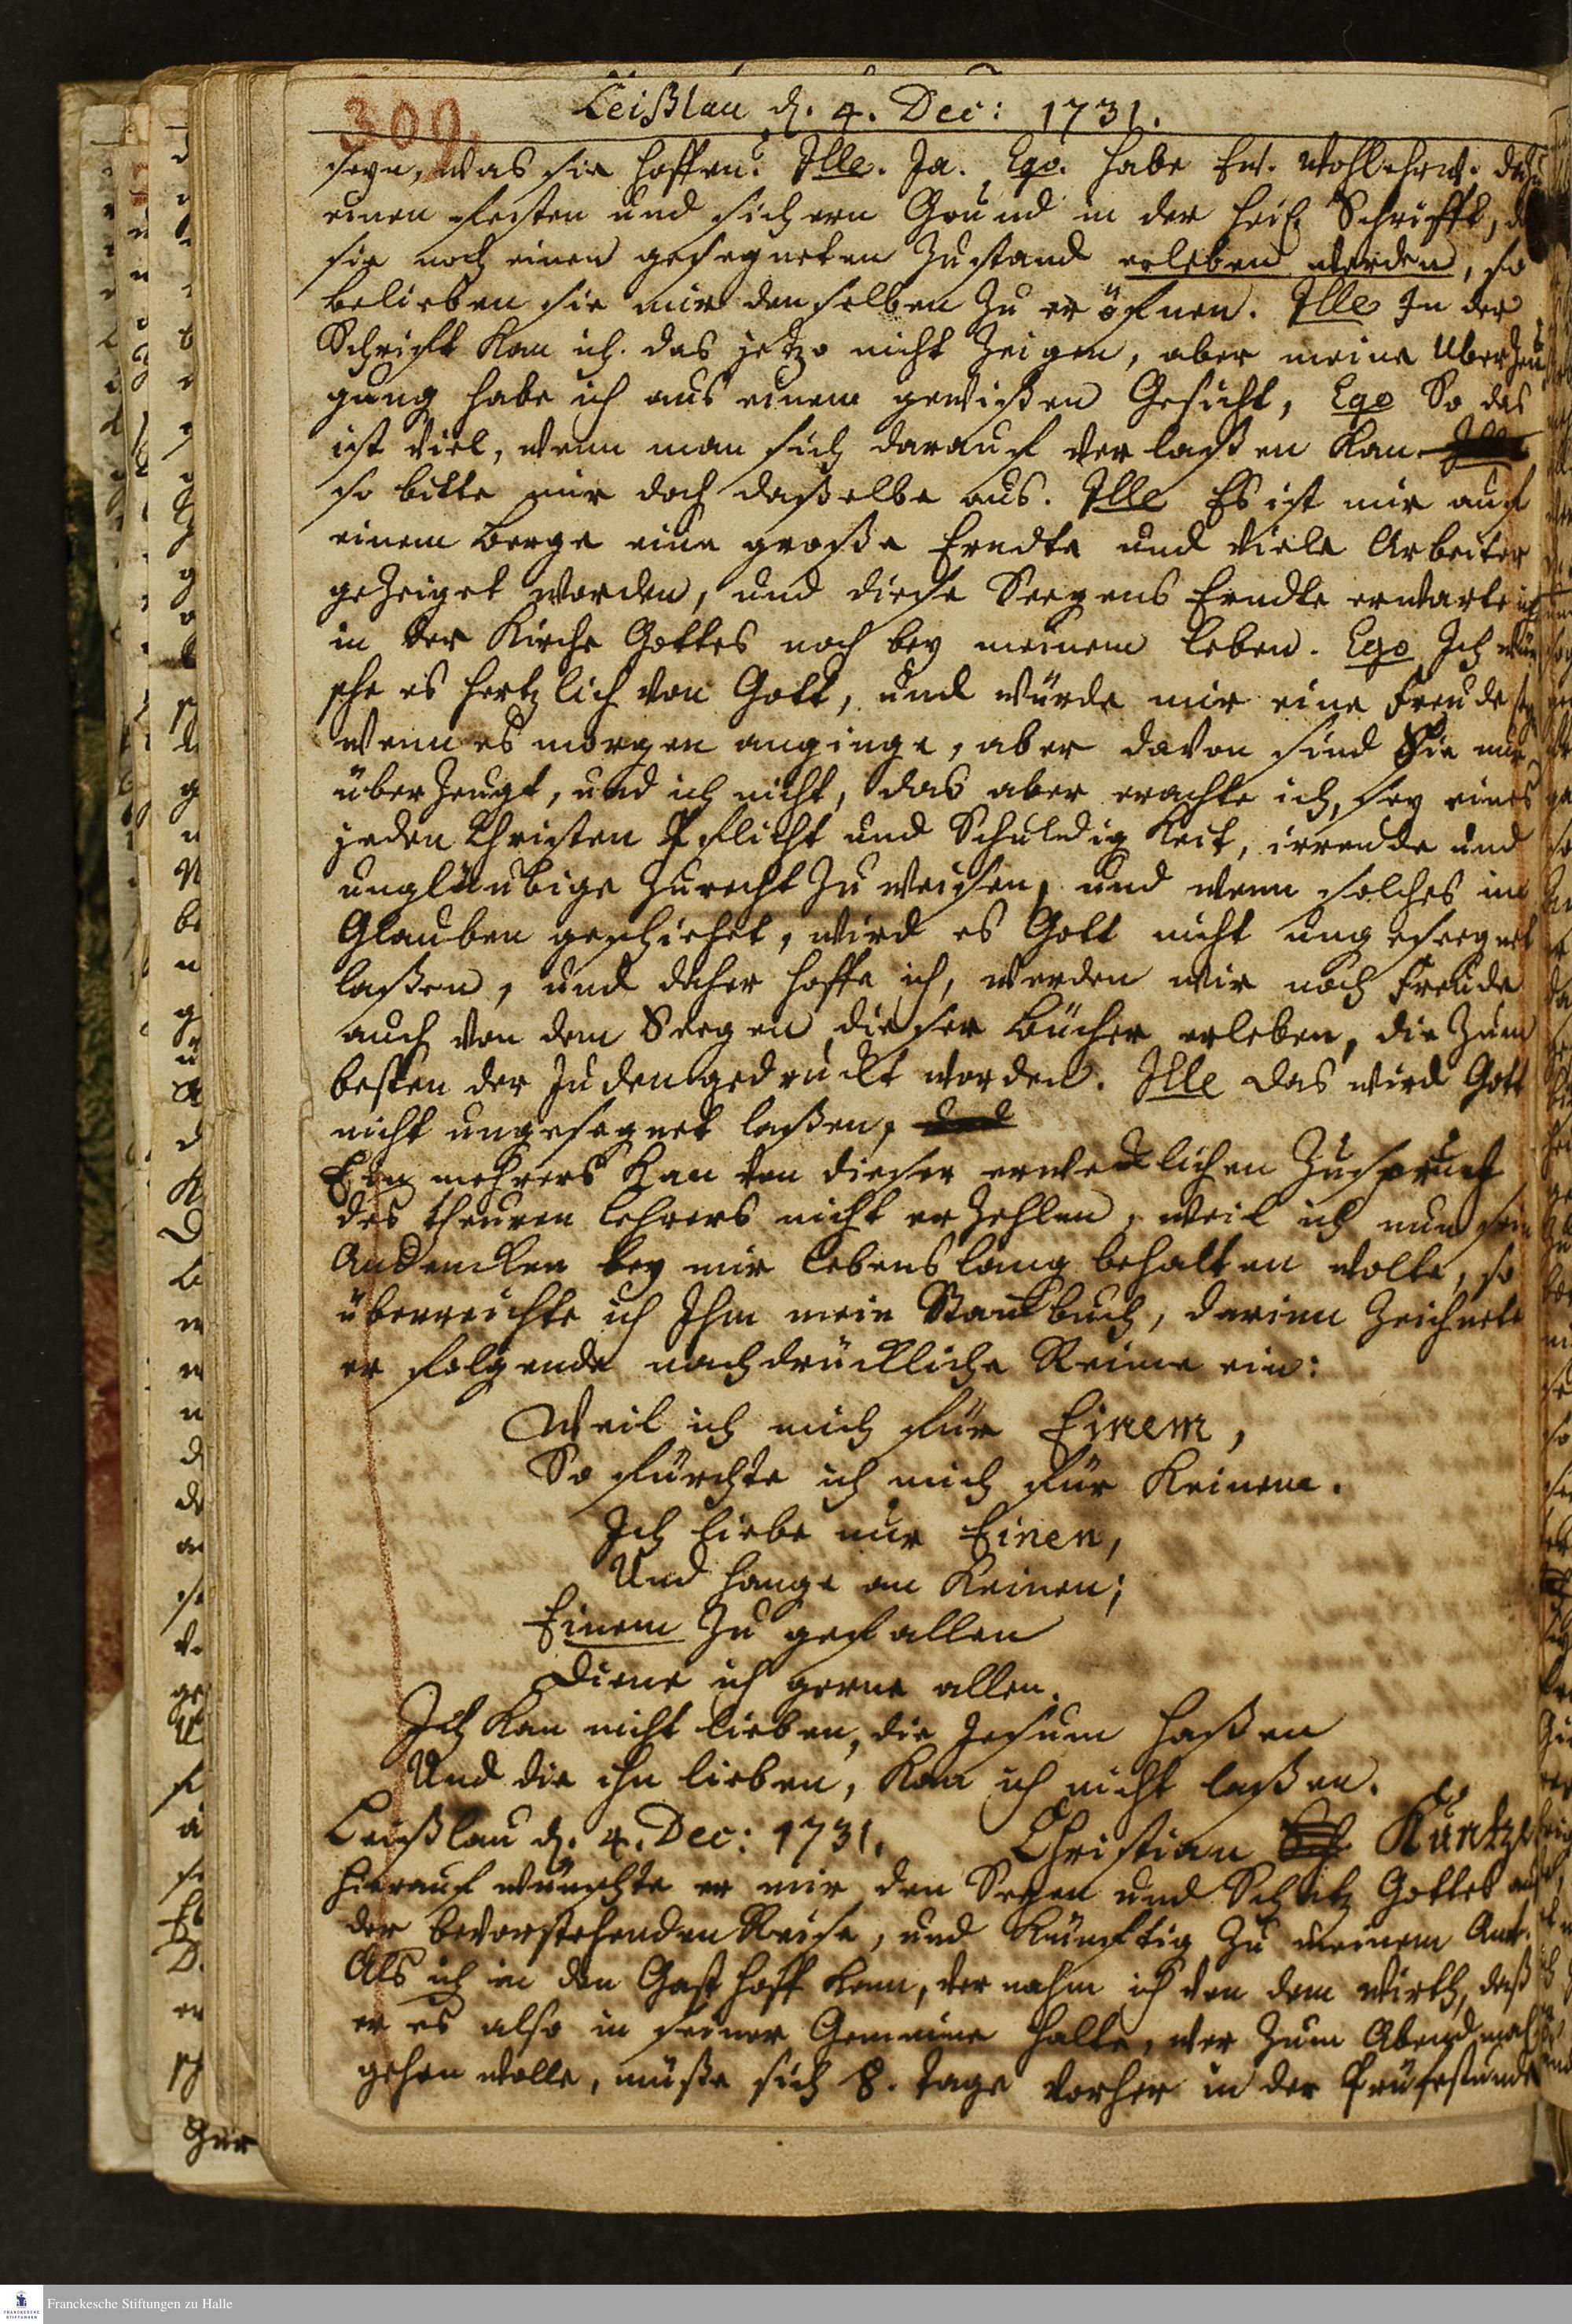 309.
Leißlau d. 4. Dec: 1731.
seyn, was sie hoffen? Ille. Ja. Ego. habe Ew. wohlehrw. dazu
einen festen und sichern Grund in der heil Schrifft, da
sie noch einen gesegneten Zustand erleben werden, so
belieben sie mir denselben zu eröfnen. Ille In der
Schrifft kan ich das jetzo nicht zeigen, aber meine Uberzeu
gung habe ich aus einem gewißen Gesicht, Ego So das
ist viel, wenn man sich darauf verlaßen kan
so bitte mir doch daßelbe aus. Ille Es ist mir auf
einem berge eine große Erndte und viele Arbeiter
gezeiget worden, und diese Seegens Erndte erwarte ich
in der Kirche Gottes noch bey meinem leben. Ego Ich wün
sche es hertzlich von Gott, und würde mir eine Freude
wenn es morgen anginge, aber davon sind Sie nur
überzeugt, und ich nicht, das aber erachte ich, sey eines
jeden Christen Pflicht und Schuldigkeit, irrende und
ungläubige zurecht zu weisen, und wenn solches im
Glauben geschiehet, wird es Gott nicht ungeseegnet
laßen, und daher hoffe ich, werden wir noch Freude
auch von dem Seegen dieser bücher erleben, die zum
besten der Juden gedruckt worden. Ille das wird Gott
nicht ungesegnet laßen,
Ein mehrers kan von dieser erwecklichen Zuspruch
des theuren lehrers nicht erzehlen, weil ich nun sein
Andencken bey mir lebenslang behalten wolte, so
überreichte ich Ihm mein Stambuch, darinn zeichnete
er folgende nachdrückliche Reime ein:
Weil ich mich für Einem,
So fürchte ich mich für Keinem.
Ich liebe nur Einen,
Und hange an Keinen;
Einem zu gefallen
Diene ich gerne allen.
Ich kan nicht lieben, die Jesum haßen
Und die ihn lieben, kan ich nicht laßen.
Leißlau d. 4. Dec: 1731. Christian Küntzel
hierauf wünschte er mir den Segen und Schutz Gottes auf
der bevorstehenden Reise, und künftig zu meinem Amt.
Als ich in den Gasthoff kam, vernahm ich von dem wirth, daß
er es also in seiner Gemeine halte, wer zum Abendmahl
gehen wolle, müße sich 8. tage vorher in der Prüfestunde
zur
Franckesche Stiftungen zu Halle